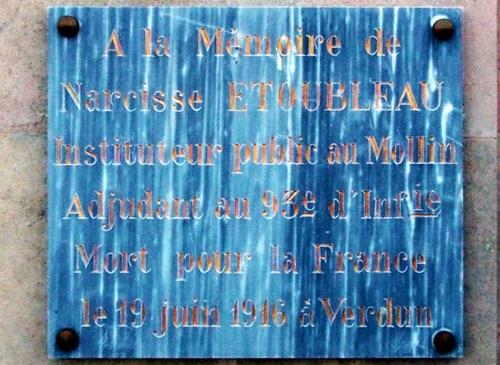 A la Mémoire de
Narcisse ETOUBLEAU
Instituteur public au Mollin
Adjudant au 93e d'Infie
Mort pour la France
le 19 juin 1916 à Verdun